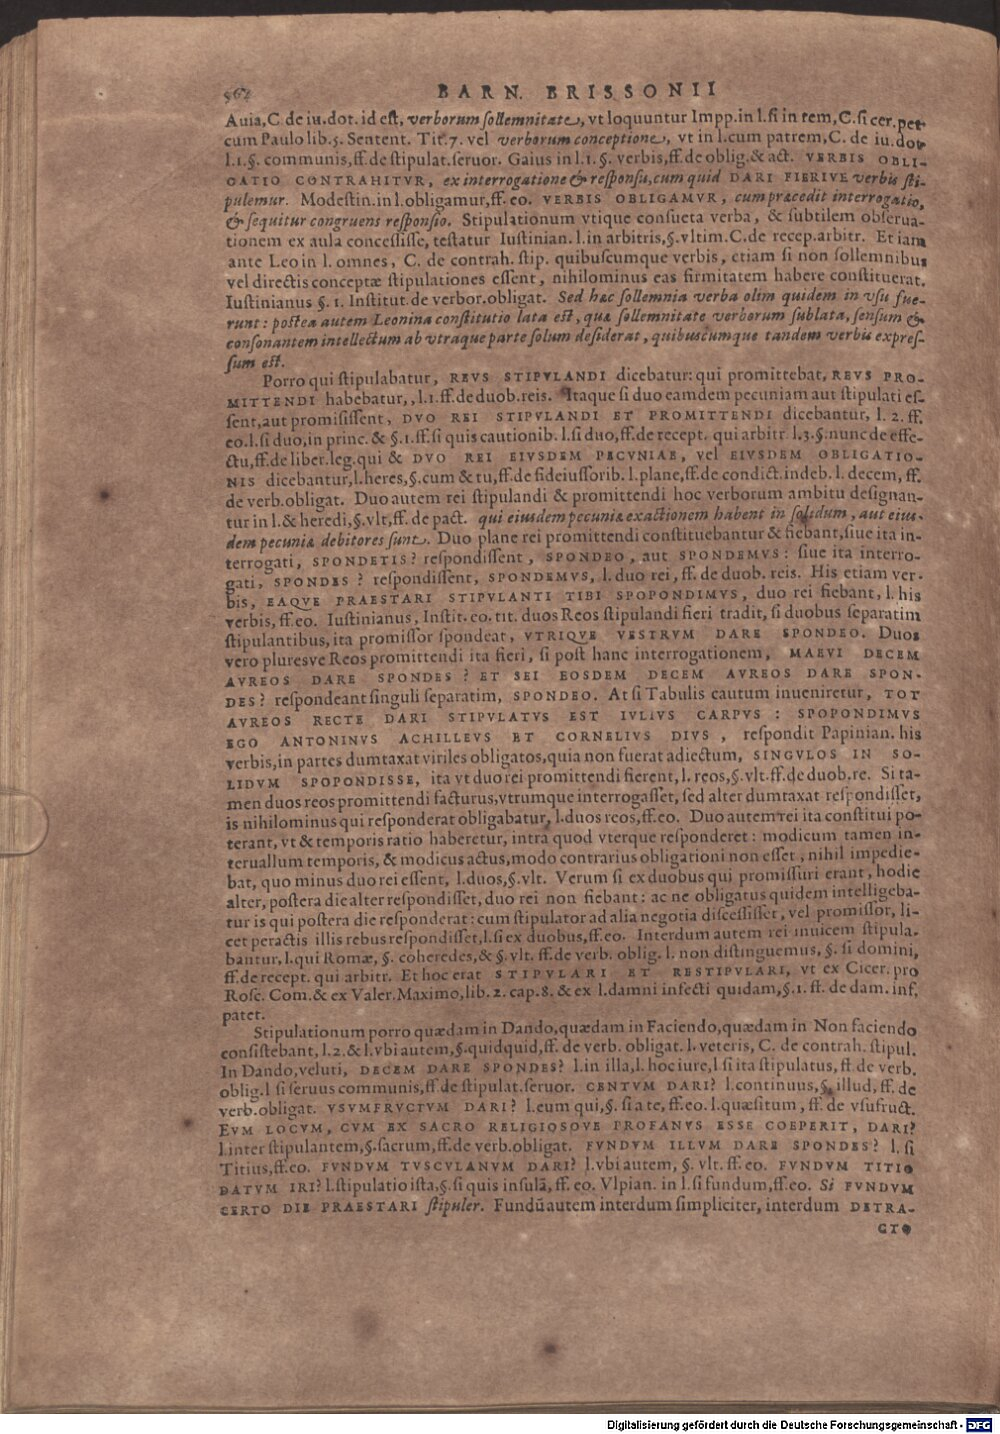 562
BARN. BRISSONII
Auia, C. de iu. dot. id est, verborum sollemnitate, vt loquuntur Impp. in l. si in rem, C. si cer. pet.
cum Paulo lib. 5. Sentent. Tit. 7. vel verborum conceptione, vt in l. cum patrem, C. de iu. dot.
l. 1. §. communis, ff. de stipulat. seruor. Gaius in l. 1. §. verbis, ff. de oblig. & act. VERBIS OBLI-
GATIO CONTRAHITVR, ex interrogatione & responsu, cum quid DARI FIERIVE verbis sti-
pulemur. Modestin. in l. obligamur, ff. eo. VERBIS OBLIGAMVR, cum præcedit interrogatio,
& sequitur congruens responsio. Stipulationum vtique consueta verba, & subtilem obserua-
tionem ex aula concessisse, testatur Iustinian. l. in arbitris, §. vltim. C. de recep. arbitr. Et iam
ante Leo in l. omnes, C. de contrah. stip. quibuscumque verbis, etiam si non sollemnibus
vel directis conceptæ stipulationes essent, nihilominus eas firmitatem habere constituerat.
Iustinianus §. 1. Institut. de verbor. obligat. Sed hæc sollemnia verba olim quidem in vsu fue-
runt: postea autem Leonina constitutio lata est, quæ sollemnitate verborum sublata, sensum &
consonantem intellectum ab vtraque parte solum desiderat, quibuscumque tandem verbis expres-
sum est.
Porro qui stipulabatur, REVS STIPVLANDI dicebatur: qui promittebat, REVS PRO-
MITTENDI habebatur,, l. 1. ff. de duob. reis. Itaque si duo eamdem pecuniam aut stipulati es-
sent, aut promisissent, DVO REI STIPVLANDI ET PROMITTENDI dicebantur, l. 2. ff.
eo. l. si duo, in princ. & §. 1. ff. si quis cautionib. l. si duo, ff. de recept. qui arbitr. l. 3. §. nunc de effe-
ctu, ff. de liber. leg. qui & DVO REI EIVSDEM PECVNIAE, vel EIVSDEM OBLIGATIO-
NIS dicebantur, l. heres, §. cum & tu, ff. de fideiussorib. l. plane, ff. de condict. indeb. l. decem, ff.
de verb. obligat. Duo autem rei stipulandi & promittendi hoc verborum ambitu designan-
tur in l. & heredi, §. vlt, ff. de pact. qui eiusdem pecuniæ exactionem habent in solidum, aut eius-
dem pecuniæ debitores sunt. Duo plane rei promittendi constituebantur & fiebant, siue ita in-
terrogati, SPONDETIS? respondissent, SPONDEO, aut SPONDEMVS: siue ita interro-
gati, SPONDES? respondissent, SPONDEMVS, l. duo rei, ff. de duob. reis. His etiam ver-
bis, EAQVE PRAESTARI STIPVLANTI TIBI SPOPONDIMVS, duo rei fiebant, l. his
verbis, ff. eo. Iustinianus, Instit. eo. tit. duos Reos stipulandi fieri tradit, si duobus separatim
stipulantibus, ita promissor spondeat, VTRIQVE VESTRVM DARE SPONDEO. Duos
vero pluresve Reos promittendi ita fieri, si post hanc interrogationem, MAEVI DECEM
AVREOS DARE SPONDES? ET SEI EOSDEM DECEM AVREOS DARE SPON-
DES? respondeant singuli separatim, SPONDEO. At si Tabulis cautum inueniretur, TOT
AVREOS RECTE DARI STIPVLATVS EST IVLIVS CARPVS: SPOPONDIMVS
EGO ANTONINVS ACHILLEVS ET CORNELIVS DIVS, respondit Papinian. his
verbis, in partes dumtaxat viriles obligatos, quia non fuerat adiectum, SINGVLOS IN SO-
LIDVM SPOPONDISSE, ita vt duo rei promittendi fierent, l. reos, §. vlt. ff. de duob. re. Si ta-
men duos reos promittendi facturus, vtrumque interrogasset, sed alter dumtaxat respondisset,
is nihilominus qui responderat obligabatur, l. duos reos, ff. eo. Duo autem rei ita constitui po-
terant, vt & temporis ratio haberetur, intra quod vterque responderet: modicum tamen in-
teruallum temporis, & modicus actus, modo contrarius obligationi non esset, nihil impedie-
bat, quo minus duo rei essent, l. duos, §. vlt. Verum si ex duobus qui promissuri erant, hodie
alter, postera die alter respondisset, duo rei non fiebant: ac ne obligatus quidem intelligeba-
tur is qui postera die responderat: cum stipulator ad alia negotia discessisset, vel promissor, li-
cet peractis illis rebus respondisset, l. si ex duobus, ff. eo. Interdum autem rei inuicem stipula-
bantur, l. qui Romæ, §. coheredes, & §. vlt. ff. de verb. oblig. l. non distinguemus, §. si domini,
ff. de recept. qui arbitr. Et hoc erat STIPVLARI ET RESTIPVLARI, vt ex Cicer. pro
Rosc. Com. & ex Valer. Maximo, lib. 2. cap. 8. & ex l. damni infecti quidam, §. 1. ff. de dam. inf.
patet.
Stipulationum porro quædam in Dando, quædam in Faciendo, quædam in Non faciendo
consistebant, l. 2. & l. vbi autem, §. quidquid, ff. de verb. obligat. l. veteris, C. de contrah. stipul.
In Dando, veluti, DECEM DARE SPONDES? l. in illa, l. hoc iure, l si ita stipulatus, ff. de verb.
oblig. l si seruus communis, ff de stipulat. seruor. CENTVM DARI? l. continuus, §. illud, ff. de
verb. obligat. VSVMFRVCTVM DARI? l. eum qui, §. si a te, ff. eo. l. quæsitum, ff. de vsufruct.
EVM LOCVM, CVM EX SACRO RELIGIOSOVE PROFANVS ESSE COEPERIT, DARI?
l. inter stipulantem, §. sacrum, ff. de verb. obligat. FVNDVM ILLVM DARE SPONDES? l. si
Titius, ff. eo. FVNDVM TVSCVLANVM DARI? l. vbi autem, §. vlt. ff. eo. FVNDVM TITIO
DATVM IRI? l. stipulatio ista, §. si quis insulã, ff. eo. Vlpian. in l. si fundum, ff. eo. Si FVNDVM
CERTO DIE PRAESTARI stipuler. Fundũ autem interdum simpliciter, interdum DETRA-
CTO
Digitalisierung gefördert durch die Deutsche Forschungsgemeinschaft - DFG